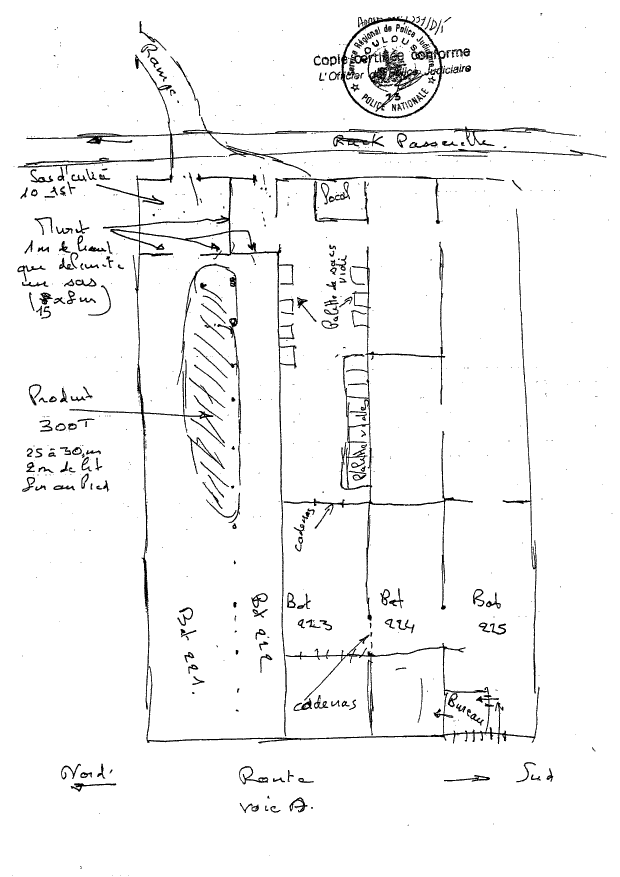 Service Régional de Police Judiciaire
TOULOUSE
Copie certifiée conforme
L'Officier de Police Judiciaire
POLICE NATIONALE
Rampe.
Rack Passerelle.
10
local
Muret
1m de haut
que délimite
un sas
15 x 8m)
Palette de sacs
vide
Produit
300T
25 à 30m
2m de ht
8m au Pied
Palettes vides
cadenas
Bat 221.
Bat 222
Bat
223
Bat
224
Bat
225
cadenas
Bureau
Nord.
Route
voie A.
Sud